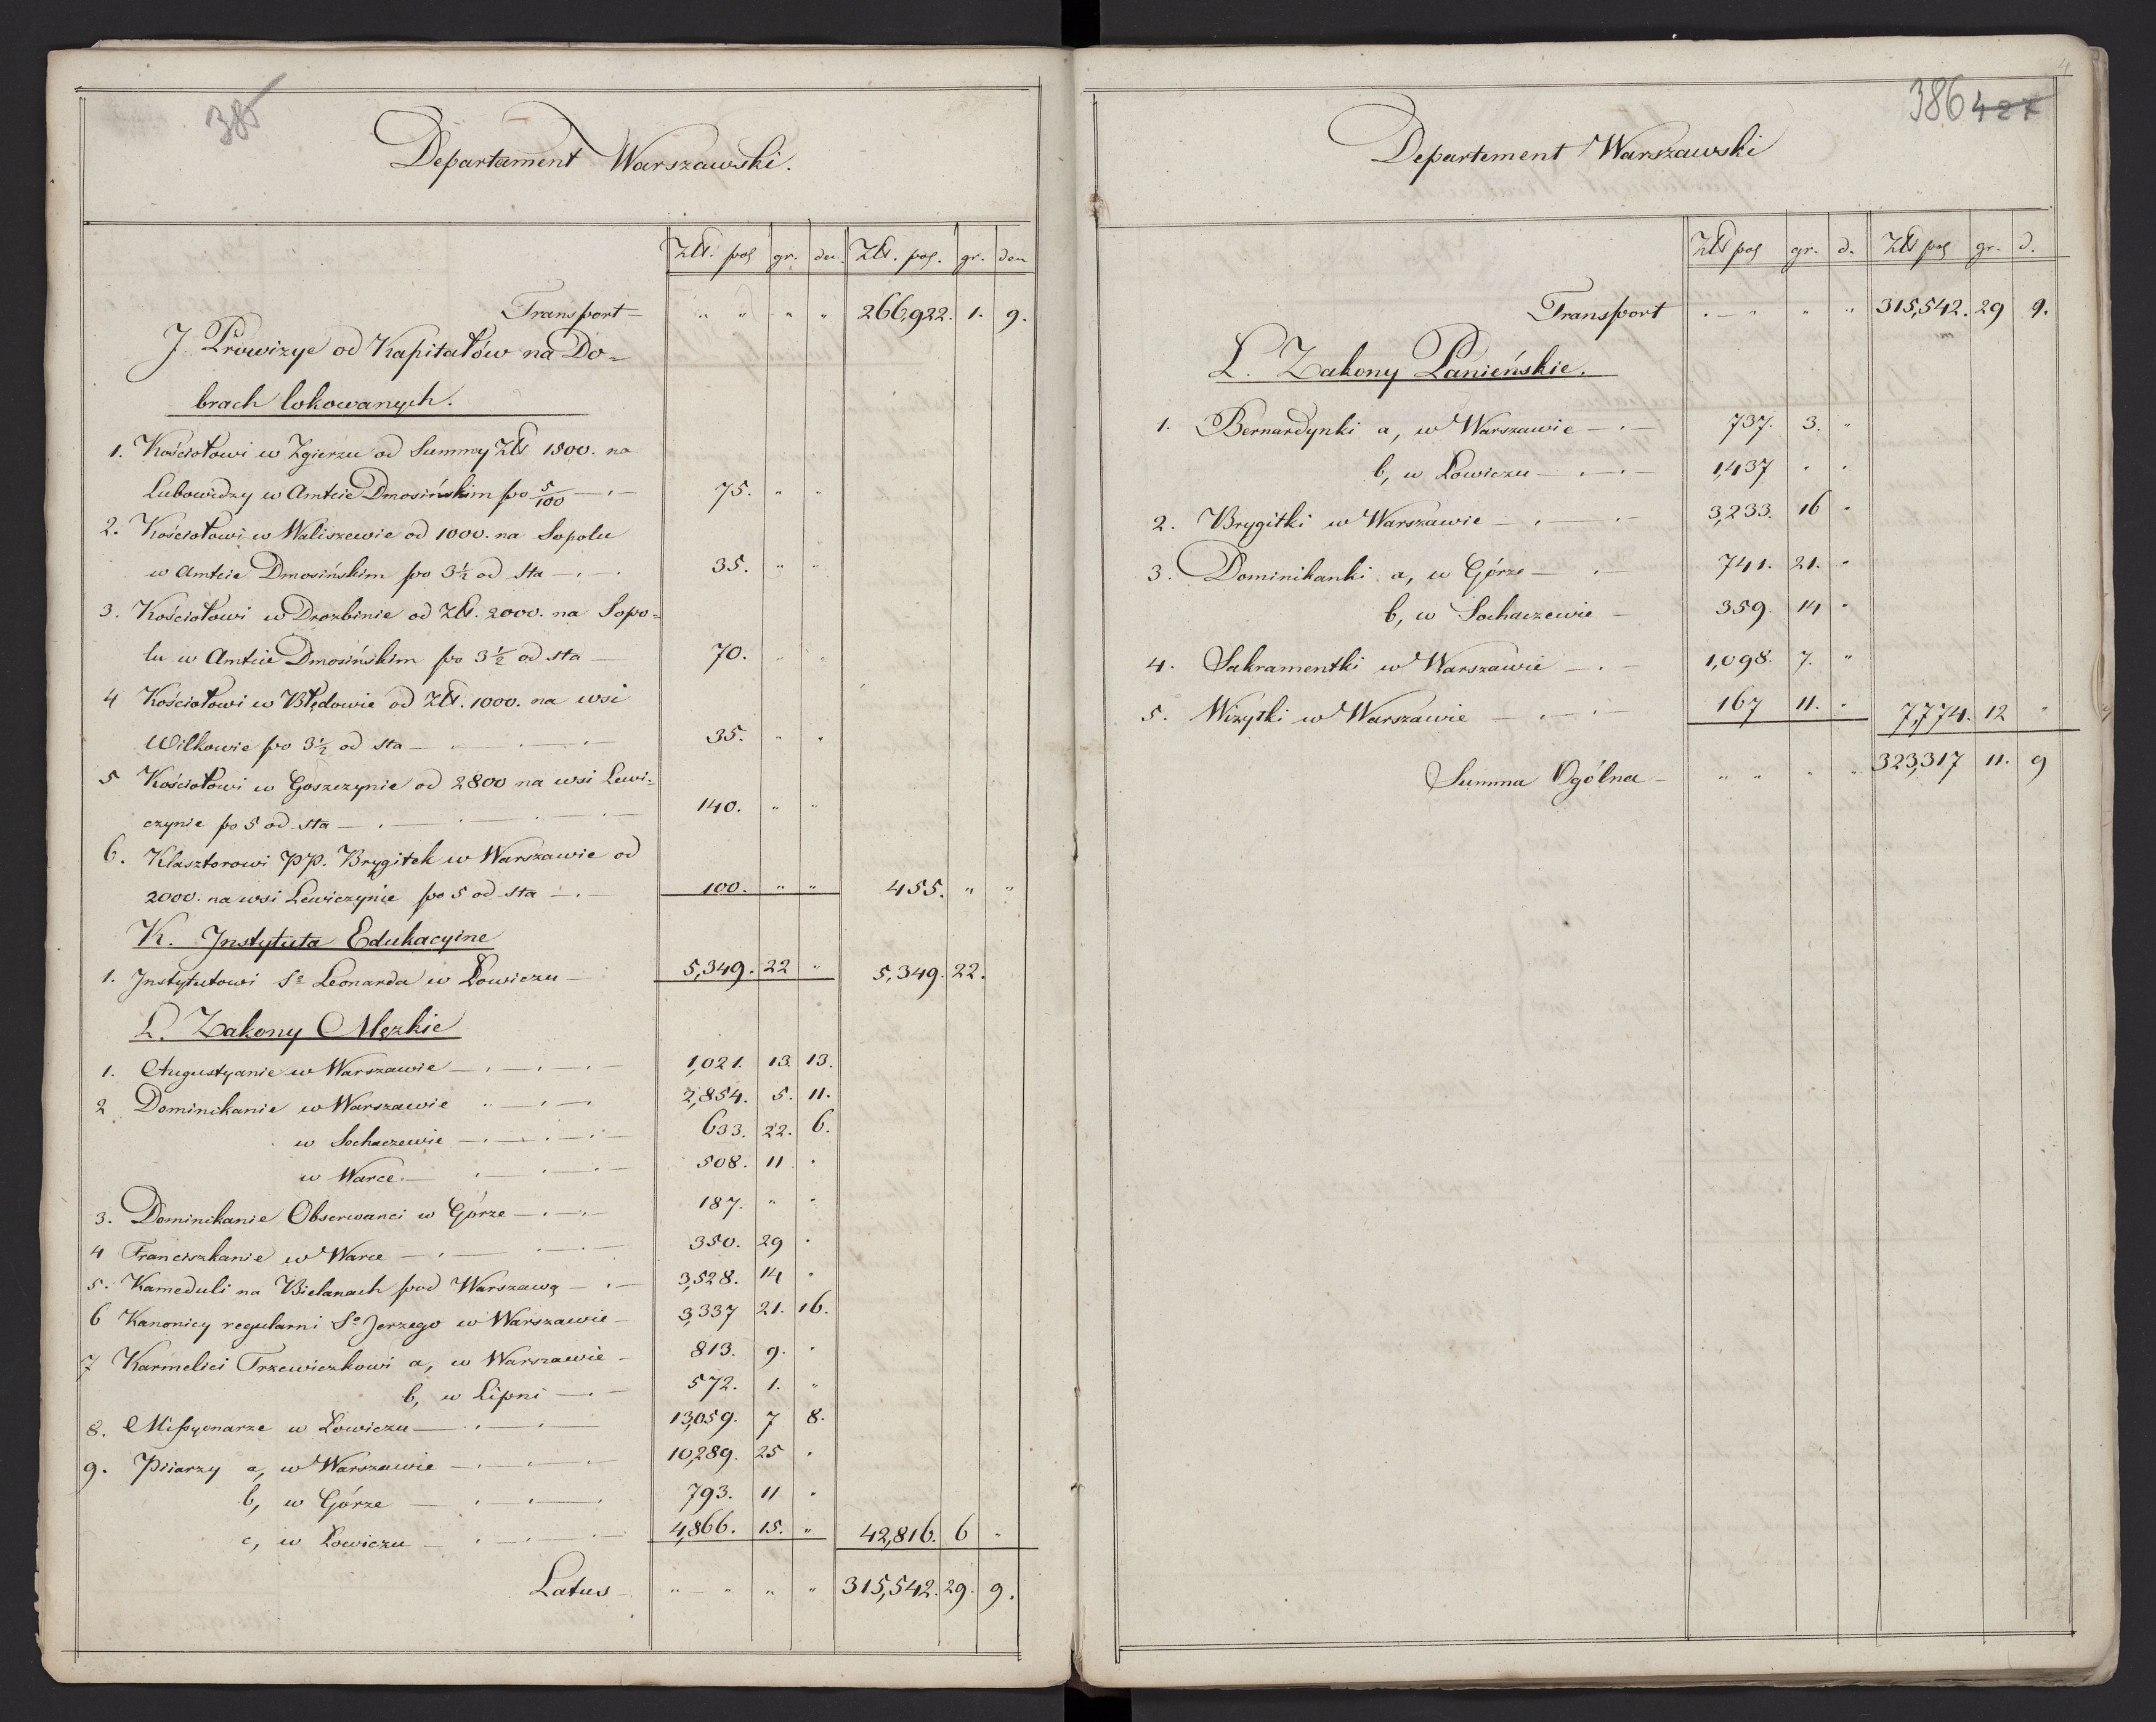 385
Departament Warszawski.
Złt. pol gr. den. Złt. pol. gr. den
Transport — " " " " 266,922. 1. 9.
J. Prowizye od Kapitałów na Do-
brach lokowanych.
1. Kościołowi w Zgierzu od Summy Złt 1500. na
Lubowidzy w Amtcie Dmosińskim po 5/100 — 75. " "
2. Kościołowi w Waliszewie od 1000. na Sopolu
w Amtcie Dmosińskim po 3½ od sta — 35. " "
3. Kościołowi w Drozbinie od Złt. 2000. na Sopo-
lu w Amtcie Dmosińskim po 3½ od sta — 70. " "
4 Kościołowi w Błędowie od Złt. 1000. na wsi
Wilkowie po 3½ od sta — 35. " "
5 Kościołowi w Goszczynie od 2800 na wsi Lewi-
czynie po 5 od sta — 140. " "
6. Klasztorowi PP. Brygitek w Warszawie od
2000. na wsi Lewiczynie po 5 od sta — 100. " " 455. " "
K. Jnstytuta Edukacyine
1. Jnstytutowi So Leonarda w Łowiczu — 5,349. 22 " 5,349. 22.
L. Zakony Męzkie
1. Augustyanie w Warszawie — 1,021. 13. 13.
2 Dominikanie w Warszawie — 2,854. 5. 11.
w Sochaczewie — 633. 22. 6.
w Warce — 508. 11 "
3. Dominikanie Obserwanci w Górze — 187. " "
4 Franciszkanie w Warce — 350. 29 "
5. Kameduli na Bielanach pod Warszawą — 3,528. 14 "
6 Kanonicy regularni So Jerzego w Warszawie — 3,337 21. 16.
7 Karmelici Trzewiczkowi a, w Warszawie — 813. 9. "
b, w Lipni — 572. 1. "
8. Missyonarze w Łowiczu — 13,059. 7 8.
9. Piiarzy a, w Warszawie — 10,289. 25 "
b, w Górze — 793. 11 "
c, w Łowiczu — 4,866. 15. " 42,816. 6 "
Latus — " " " " 315,542. 29. 9.
386 427
Departement Warszawski
Złt pol gr. d. Złt pol gr. d.
Transport " " " " 315,542. 29 9.
L. Zakony Panieńskie.
1. Bernardynki a, w Warszawie — 737. 3. "
b, w Łowiczu — 1,437 " "
2. Brygitki w Warszawie — 3,233. 16 "
3. Dominikanki a, w Górze — 741. 21. "
b, w Sochaczewie — 359. 14 "
4. Sakramentki w Warszawie — 1,098. 7. "
5. Wizytki w Warszawie — 167 11. " 7,774. 12 "
Summa Ogólna — " " " " 323,317 11. 9